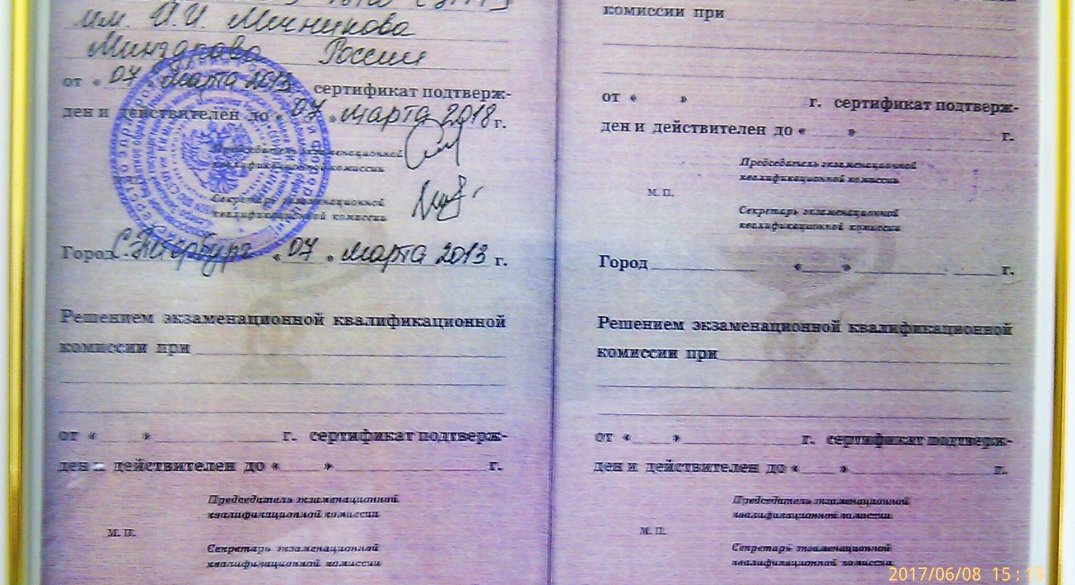 им. И.И. Мечникова
Минздрава России
от « 07 » марта 2013 сертификат подтверж-
ден и действителен до « 07 » марта 2018 г.
Председатель экзаменационной
квалификационной комиссии
Секретарь экзаменационной
квалификационной комиссии
Город С.-Петербург « 07 » марта 2013 г.
Решением экзаменационной квалификационной
комиссии при
от « » г. сертификат подтверж-
ден и действителен до « » г.
Председатель экзаменационной
квалификационной комиссии
М. П.
Секретарь экзаменационной
квалификационной комиссии
комиссии при
от « » г. сертификат подтверж-
ден и действителен до « » г.
Председатель экзаменационной
квалификационной комиссии
М. П.
Секретарь экзаменационной
квалификационной комиссии
Город « » г.
Решением экзаменационной квалификационной
комиссии при
от « » г. сертификат подтверж-
ден и действителен до « » г.
Председатель экзаменационной
квалификационной комиссии
М. П.
Секретарь экзаменационной
квалификационной комиссии
2017/06/08 15:13